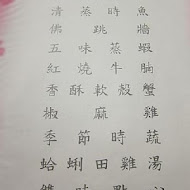 清蒸時魚
佛跳牆
五味蒸蝦
紅燒牛腩
香酥軟殼蟹
椒麻雞
季節時蔬
蛤蜊田雞湯